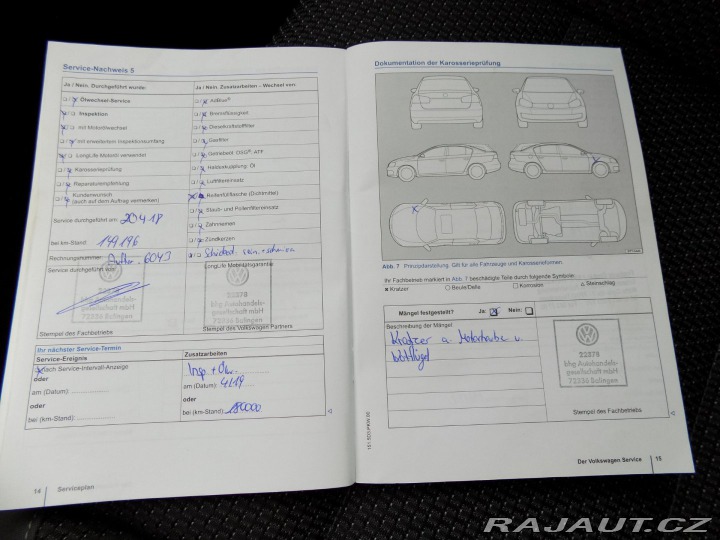 Service-Nachweis 5
Ja / Nein. Durchgeführt wurde:
Ölwechsel-Service
Inspektion
mit Motorölwechsel
mit erweitertem Inspektionsumfang
LongLife Motoröl verwendet
Karosserieprüfung
Reparaturempfehlung
Kundenwunsch
(auch auf dem Auftrag vermerken)
Service durchgeführt am: 20 4 18
bei km-Stand: 149196
Rechnungsnummer:
Service durchgeführt von:
22378
bhg Autohandels-
gesellschaft mbH
72336 Balingen
Stempel des Fachbetriebs
Ja / Nein. Zusatzarbeiten – Wechsel von:
AdBlue®
Bremsflüssigkeit
Dieselkraftstofffilter
Gasfilter
Getriebeöl: DSG®, AFF
Haldexkupplung: Öl
Luftfiltereinsatz
Reifenfüllflasche (Dichtmittel)
Staub- und Pollenfiltereinsatz
Zahnriemen
Zündkerzen
LongLife Mobilitätsgarantie
Stempel des Volkswagen Partners
Ihr nächster Service-Termin
Service-Ereignis
nach Service-Intervall-Anzeige
oder
am (Datum):
oder
bei (km-Stand):
Zusatzarbeiten
Insp + Ölw.
am (Datum): 4/19
oder
bei (km-Stand): 180000
14 Serviceplan
Dokumentation der Karosserieprüfung
Abb. 7 Prinzipdarstellung: Gilt für alle Fahrzeuge und Karosserieformen.
Ihr Fahrzeug markiert in Abb. 7 beschädigte Teile durch folgende Symbole:
× Kratzer ○ Beule/Delle □ Korrosion △ Steinschlag
Mängel festgestellt? Ja: Nein:
Beschreibung der Mängel:
Kratzer a. Motorhaube u.
22378
bhg Autohandels-
gesellschaft mbH
72336 Balingen
Stempel des Fachbetriebs
Der Volkswagen Service 15
RAJAUT.CZ